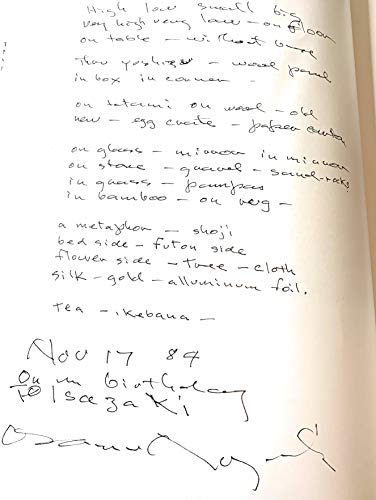 High low small big
very high very low - on floor
on table - without base
Thru yoshizu - wood panel
in box in corner -
on tatami on wood - old
new - egg crate - paper
on glass - mirror in mirror
on stone - gravel - sand - rocks
in grass - pampas
in bamboo - on -
a metaphor - shoji
bed side - futon side
flower side - tree - cloth
silk - gold - alluminum foil.
tea - ikebana -
Nov 17 84
On birthday
to Isozaki
Isamu Noguchi